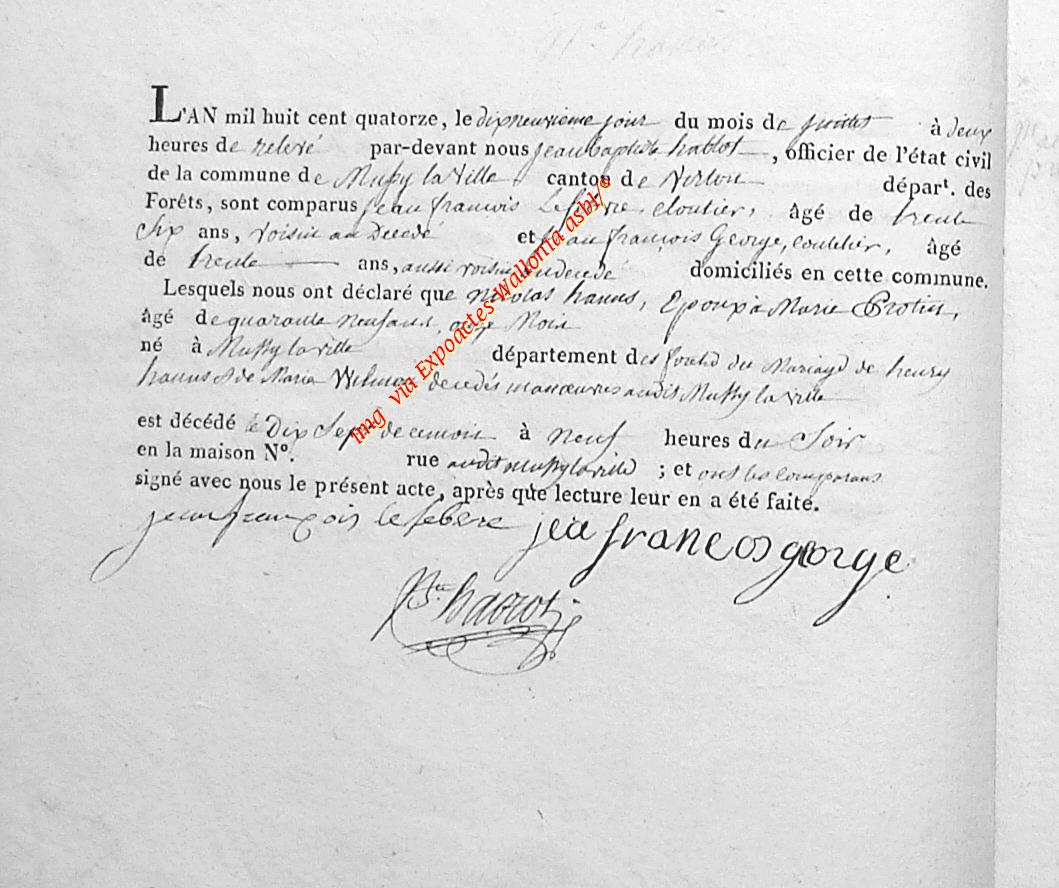 L'AN mil huit cent quatorze, le dixneuvieme jour du mois de juillet à deux
heures de relevé par-devant nous jean baptiste hablot, officier de l'état civil
de la commune de Mussy la Ville canton de Virton dépar.t des
Forêts, sont comparus jean françois Lefebvre, cloutier, âgé de trente
Six ans, voisin au Decedé et jean françois George, coutelier, âgé
de trente ans, aussi voisin au decedé domiciliés en cette commune.
Lesquels nous ont déclaré que nicolas hanus, Epoux a Marie Protin,
âgé de quarante neuf ans, onze Mois
né à Mussy la ville département des forets du Mariage de henry
hanus & de Marie decedés manœuvres audit Mussy la ville
est décédé le Dix Sept de ce mois à neuf heures du Soir
en la maison N°. rue audit mussy la ville ; et ont les comparans
signé avec nous le présent acte, après que lecture leur en a été faite.
jean françois lefebvre jea francos george
hablot
img via Expoactes Wallonia asbl/©